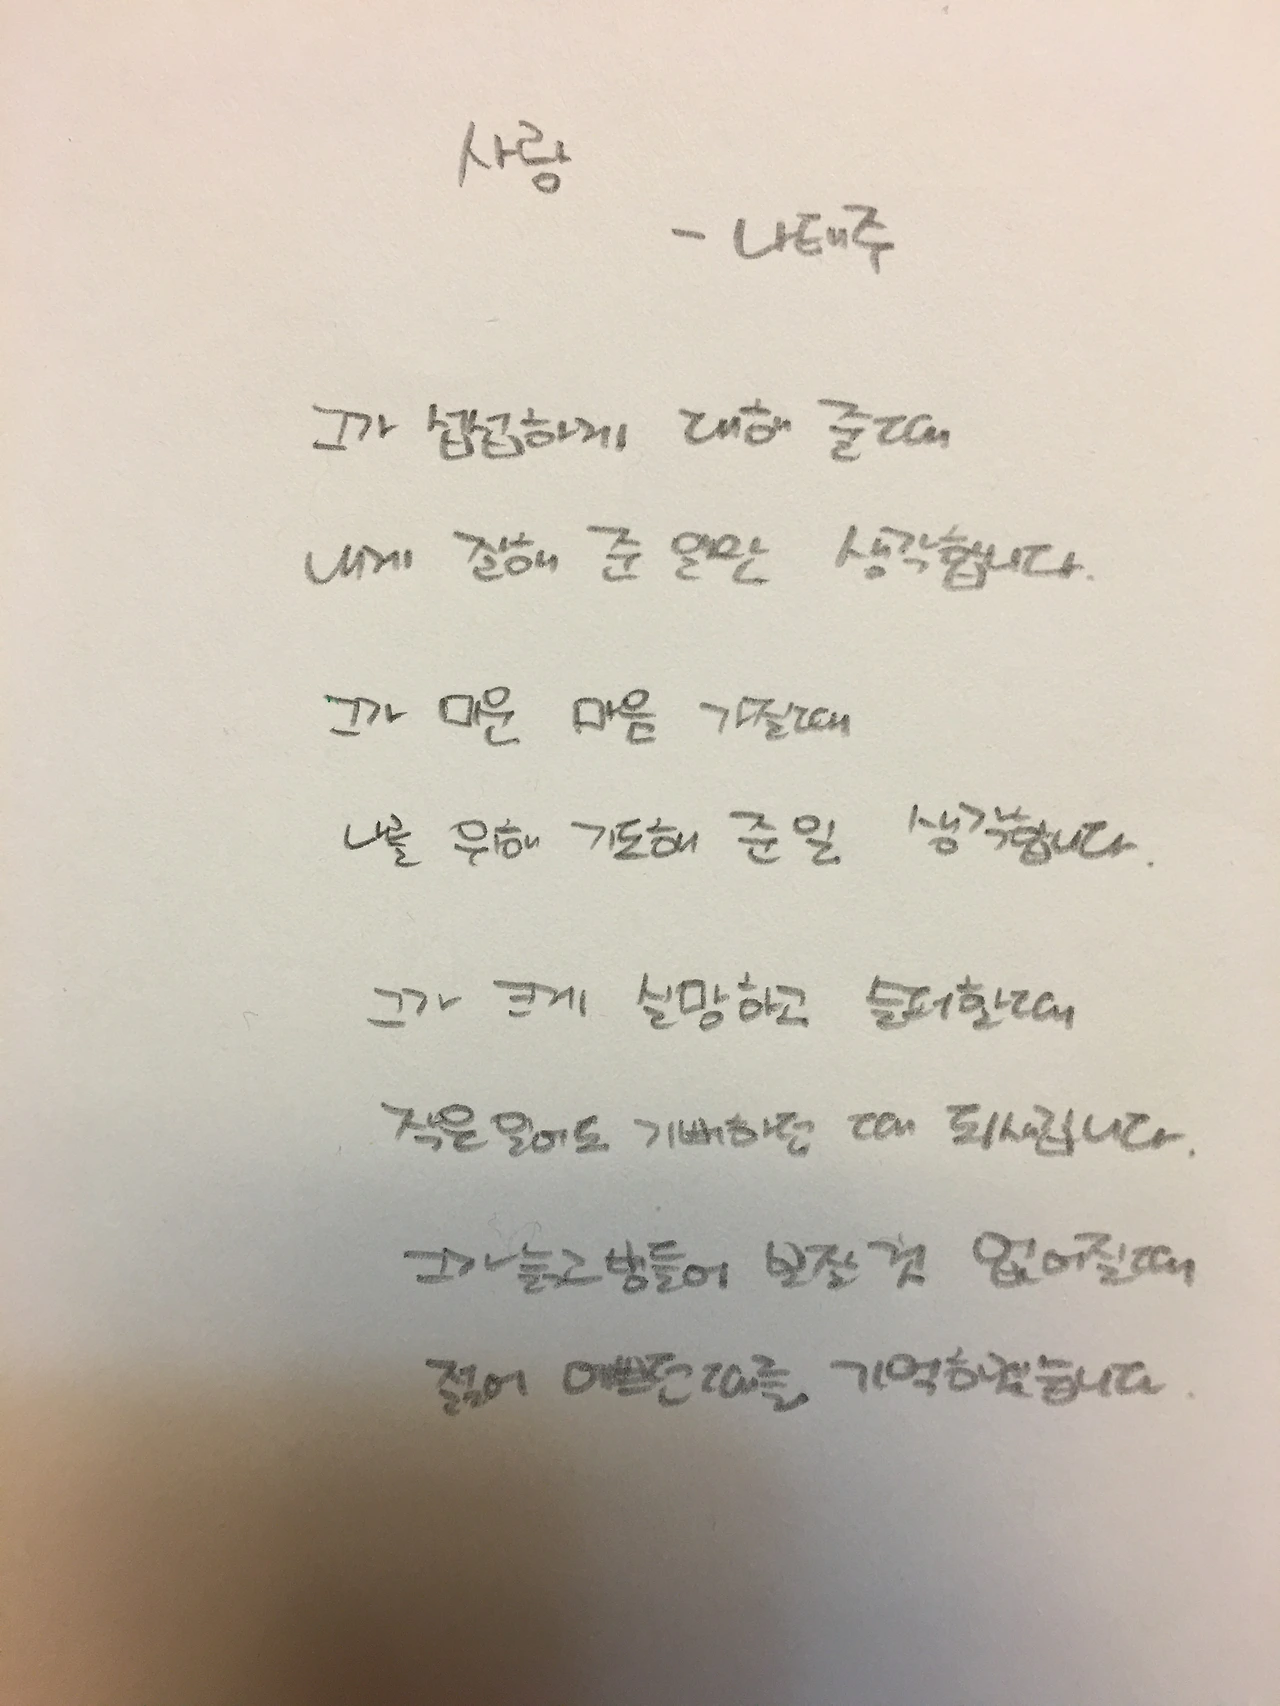 사랑
- 나태주
그가 섭섭하게 대해 줄때
내게 잘해 준 일만 생각합니다.
그가 미운 마음 가질때
나를 위해 기도해 준일 생각합니다.
그가 크게 실망하고 슬퍼할때
작은일에도 기뻐하던 때 되새립니다.
그가늙고 병들어 보잘것 없어질때
젊어 예쁘던때를 기억하겠습니다.